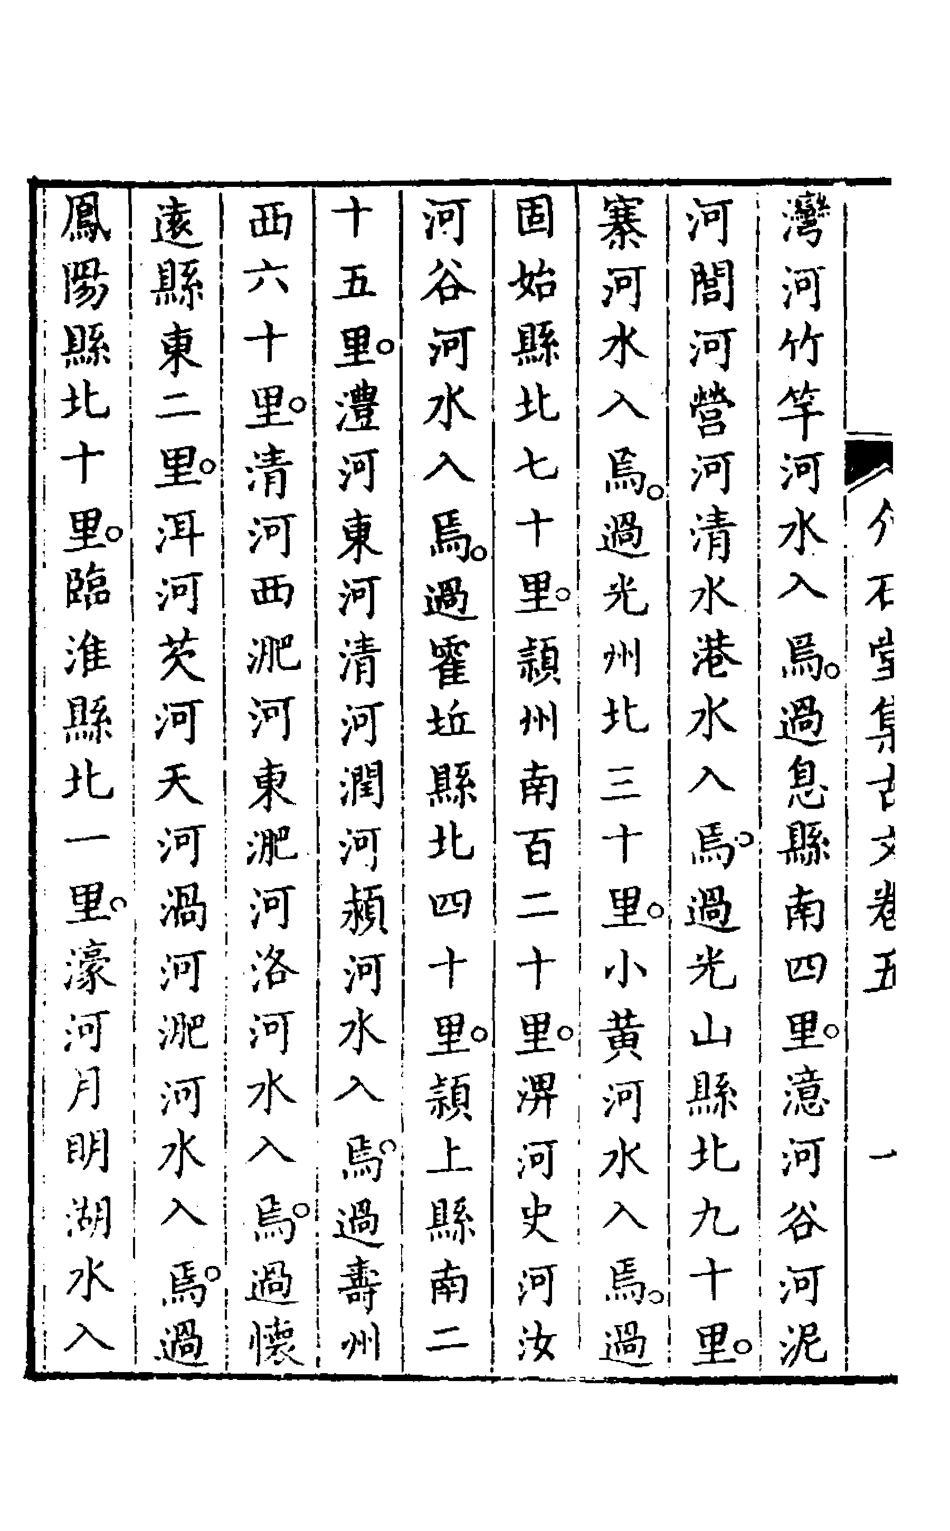 介石堂集古文卷五　一
灣河竹竿河水入焉。過息縣南四里。澺河谷河泥
河閭河營河清水港水入焉。過光山縣北九十里。
寨河水入焉。過光州北三十里。小黃河水入焉。過
固始縣北七十里。潁州南百二十里。淠河史河汝
河谷河水入焉。過霍丘縣北四十里。潁上縣南二
十五里。灃河東河清河潤河潁河水入焉。過壽州
西六十里。清河西淝河東淝河洛河水入焉。過懷
遠縣東二里。洱河茨河天河渦河淝河水入焉。過
鳳陽縣北十里。臨淮縣北一里。濠河月明湖水入